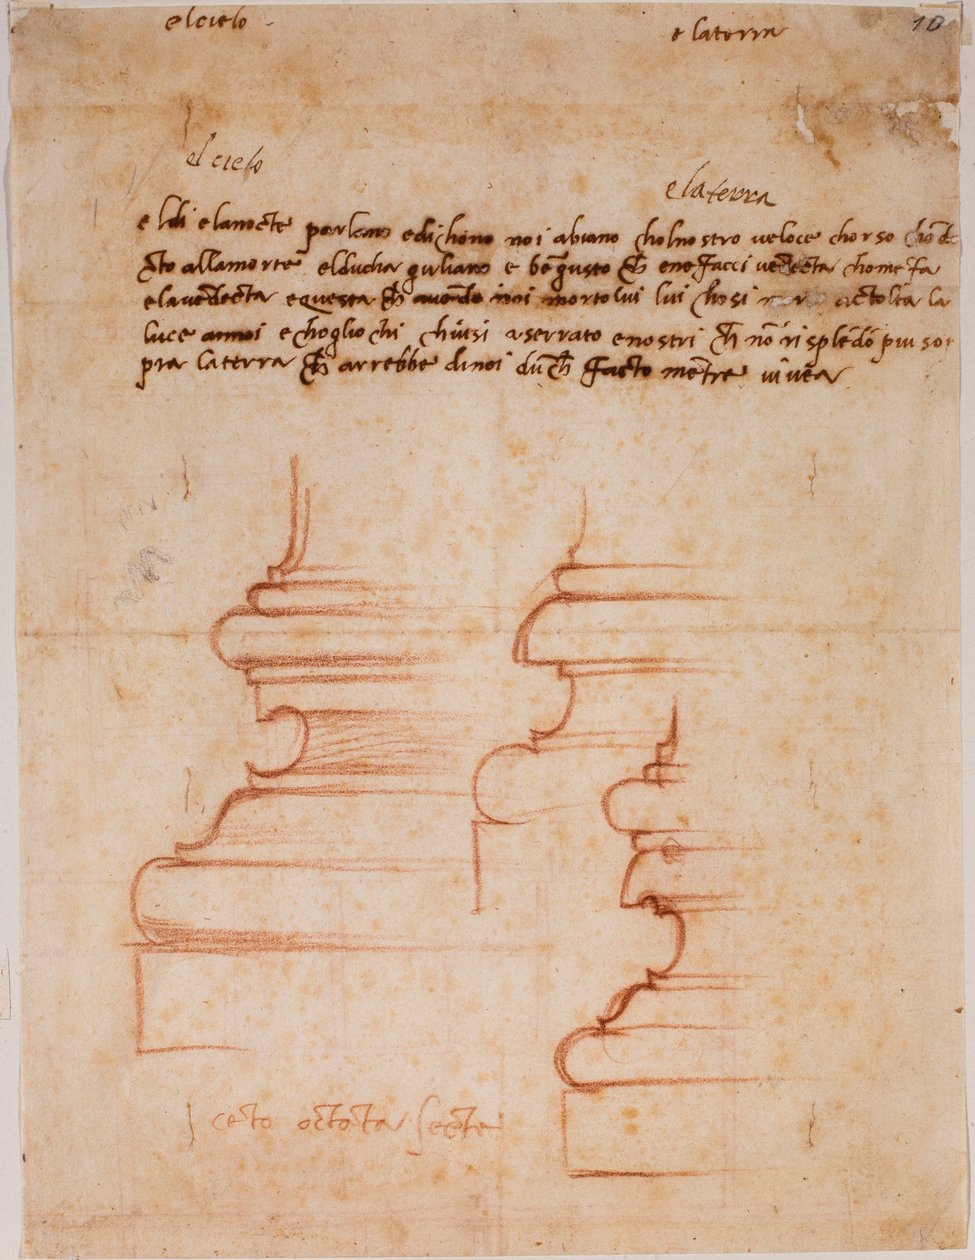 el cielo
e la terra
10
el cielo
e la terra
e ldi e la nocte parlano e dichono noi abiano chol nostro veloce chorso
sto alla morte el ducha guliano e bē gusto ch̄ e ne facci vēdecta chome fa
e la vēdecta e questa ch̄ avēdo noi morto lui lui chosi a tolta la
luce a nnoi e chogli ochi chiusi a serrato e nostri ch̄ nō risplēdō piu so
pra la terra ch̄ arrebbe di noi dūch̄ facto mētre vivea
cēto octāta secte